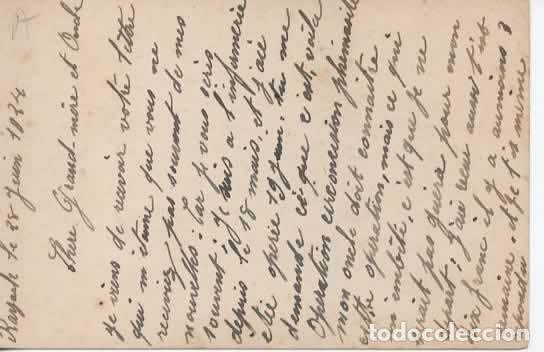 Rayack le 28 Juin 1934
Chere Grand-mère et Oncle
Je viens de recevoir votre lettre
qui m'étonne que vous ne
recevez pas souvent de mes
nouvelles. Car je vous écris
souvent; je suis a l'infirmerie
depuis le 18 mai, et j'ai
été opéré 19 juin. tu me
demande ce que c'est, voila
Operation circoncision phimosite
mon oncle doit connaitre
cette operation, mais ce qui
m'embête, c'est que je ne
serait pas guéris pour mon
départ; j'ai reçu aussi
dix franc il y a
semaine, et je t'a même
todocoleccion